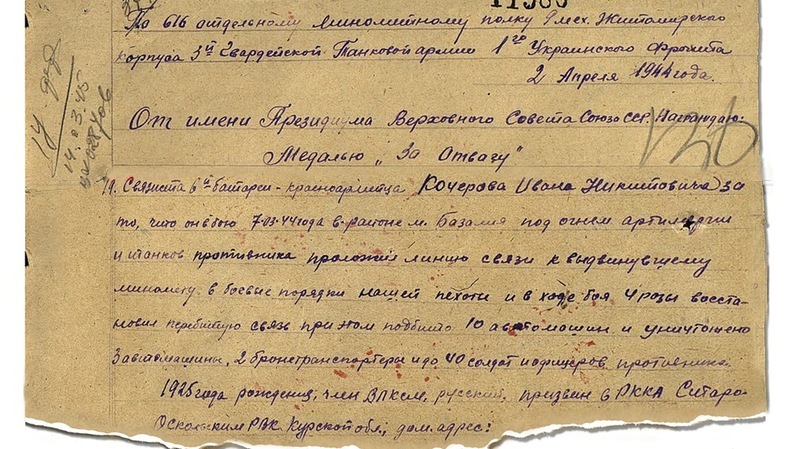 11380
По 616 отдельному Минометному полку 9 мех. Житомирского
корпуса 3й Гвардейской Танковой армии 1го Украинского Фронта
2 Апреля 1944 года.
От имени Президиума Верховного Совета Союза ССР Награждаю:
Медалью „За Отвагу"
19. Связиста 6й батареи - красноармейца Кочерова Ивана Никитовича за
то, что он в бою 7.03.44 года в районе м. Базалия под огнем артиллерии
и танков противника проложил линию связи к выдвинувшему
миномету в боевые порядки нашей пехоты и в ходе боя 4 розы восста-
новил перебитую связь при ном подбито 10 автомашин и уничтожено
3 автомашины, 2 бронетранспортера и до 40 солдат и офицеров противника
1925 года рождения, член ВЛКСМ, русский, призван в РККА Старо-
Оскольским РВК Курской обл., дом. адрес:
14.03.45